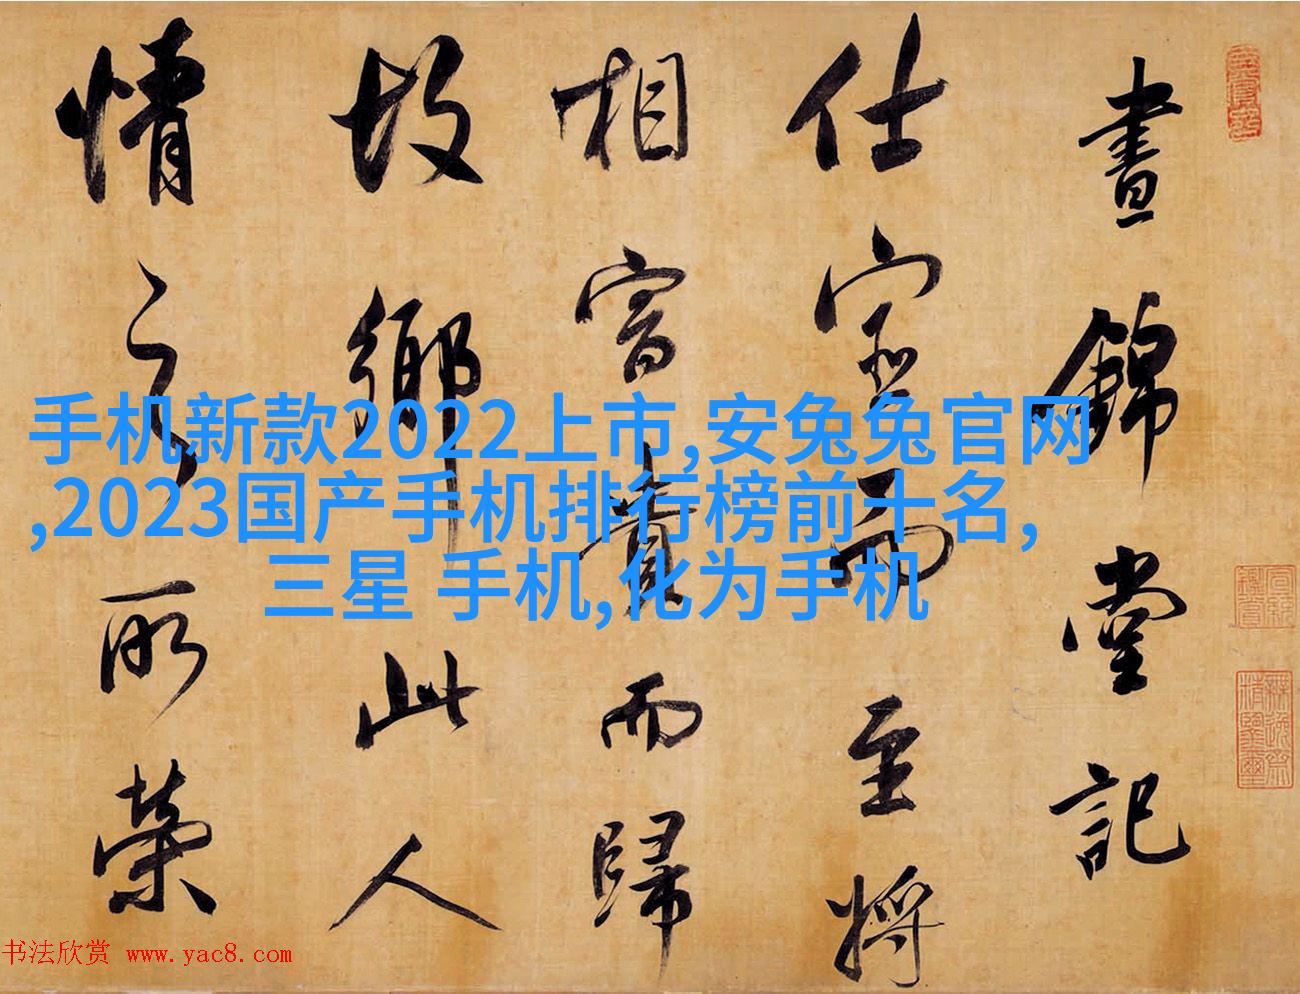 晝錦堂記
仕宦而至將
相富貴而歸
故鄉此人
情之所榮
手机新款2022上市,安兔兔官网
,2023国产手机排行榜前十名,
三星 手机,化为手机
书法欣赏 www.yac8.com